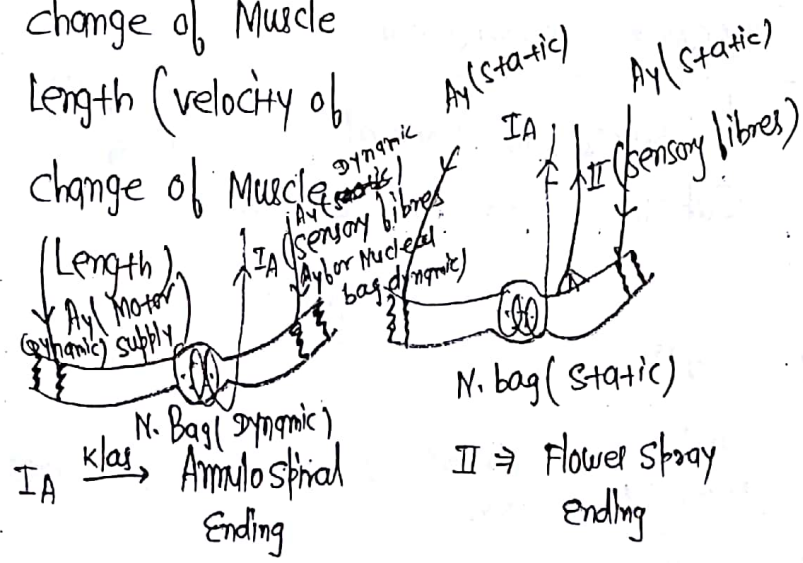 change of Muscle
Length (velocity of
change of Muscle
Length)
Aγ (Motor
(Dynamic) supply)
IA
Dynamic
Aγ (static)
(sensory fibres
Aγ for Nuclear
bag dynamic)
N. Bag (Dynamic)
IA k/as → Annulo spiral
Ending
Aγ (static)
IA
II (sensory fibres)
Aγ (static)
N. bag (static)
II ⇒ Flower spray
Ending